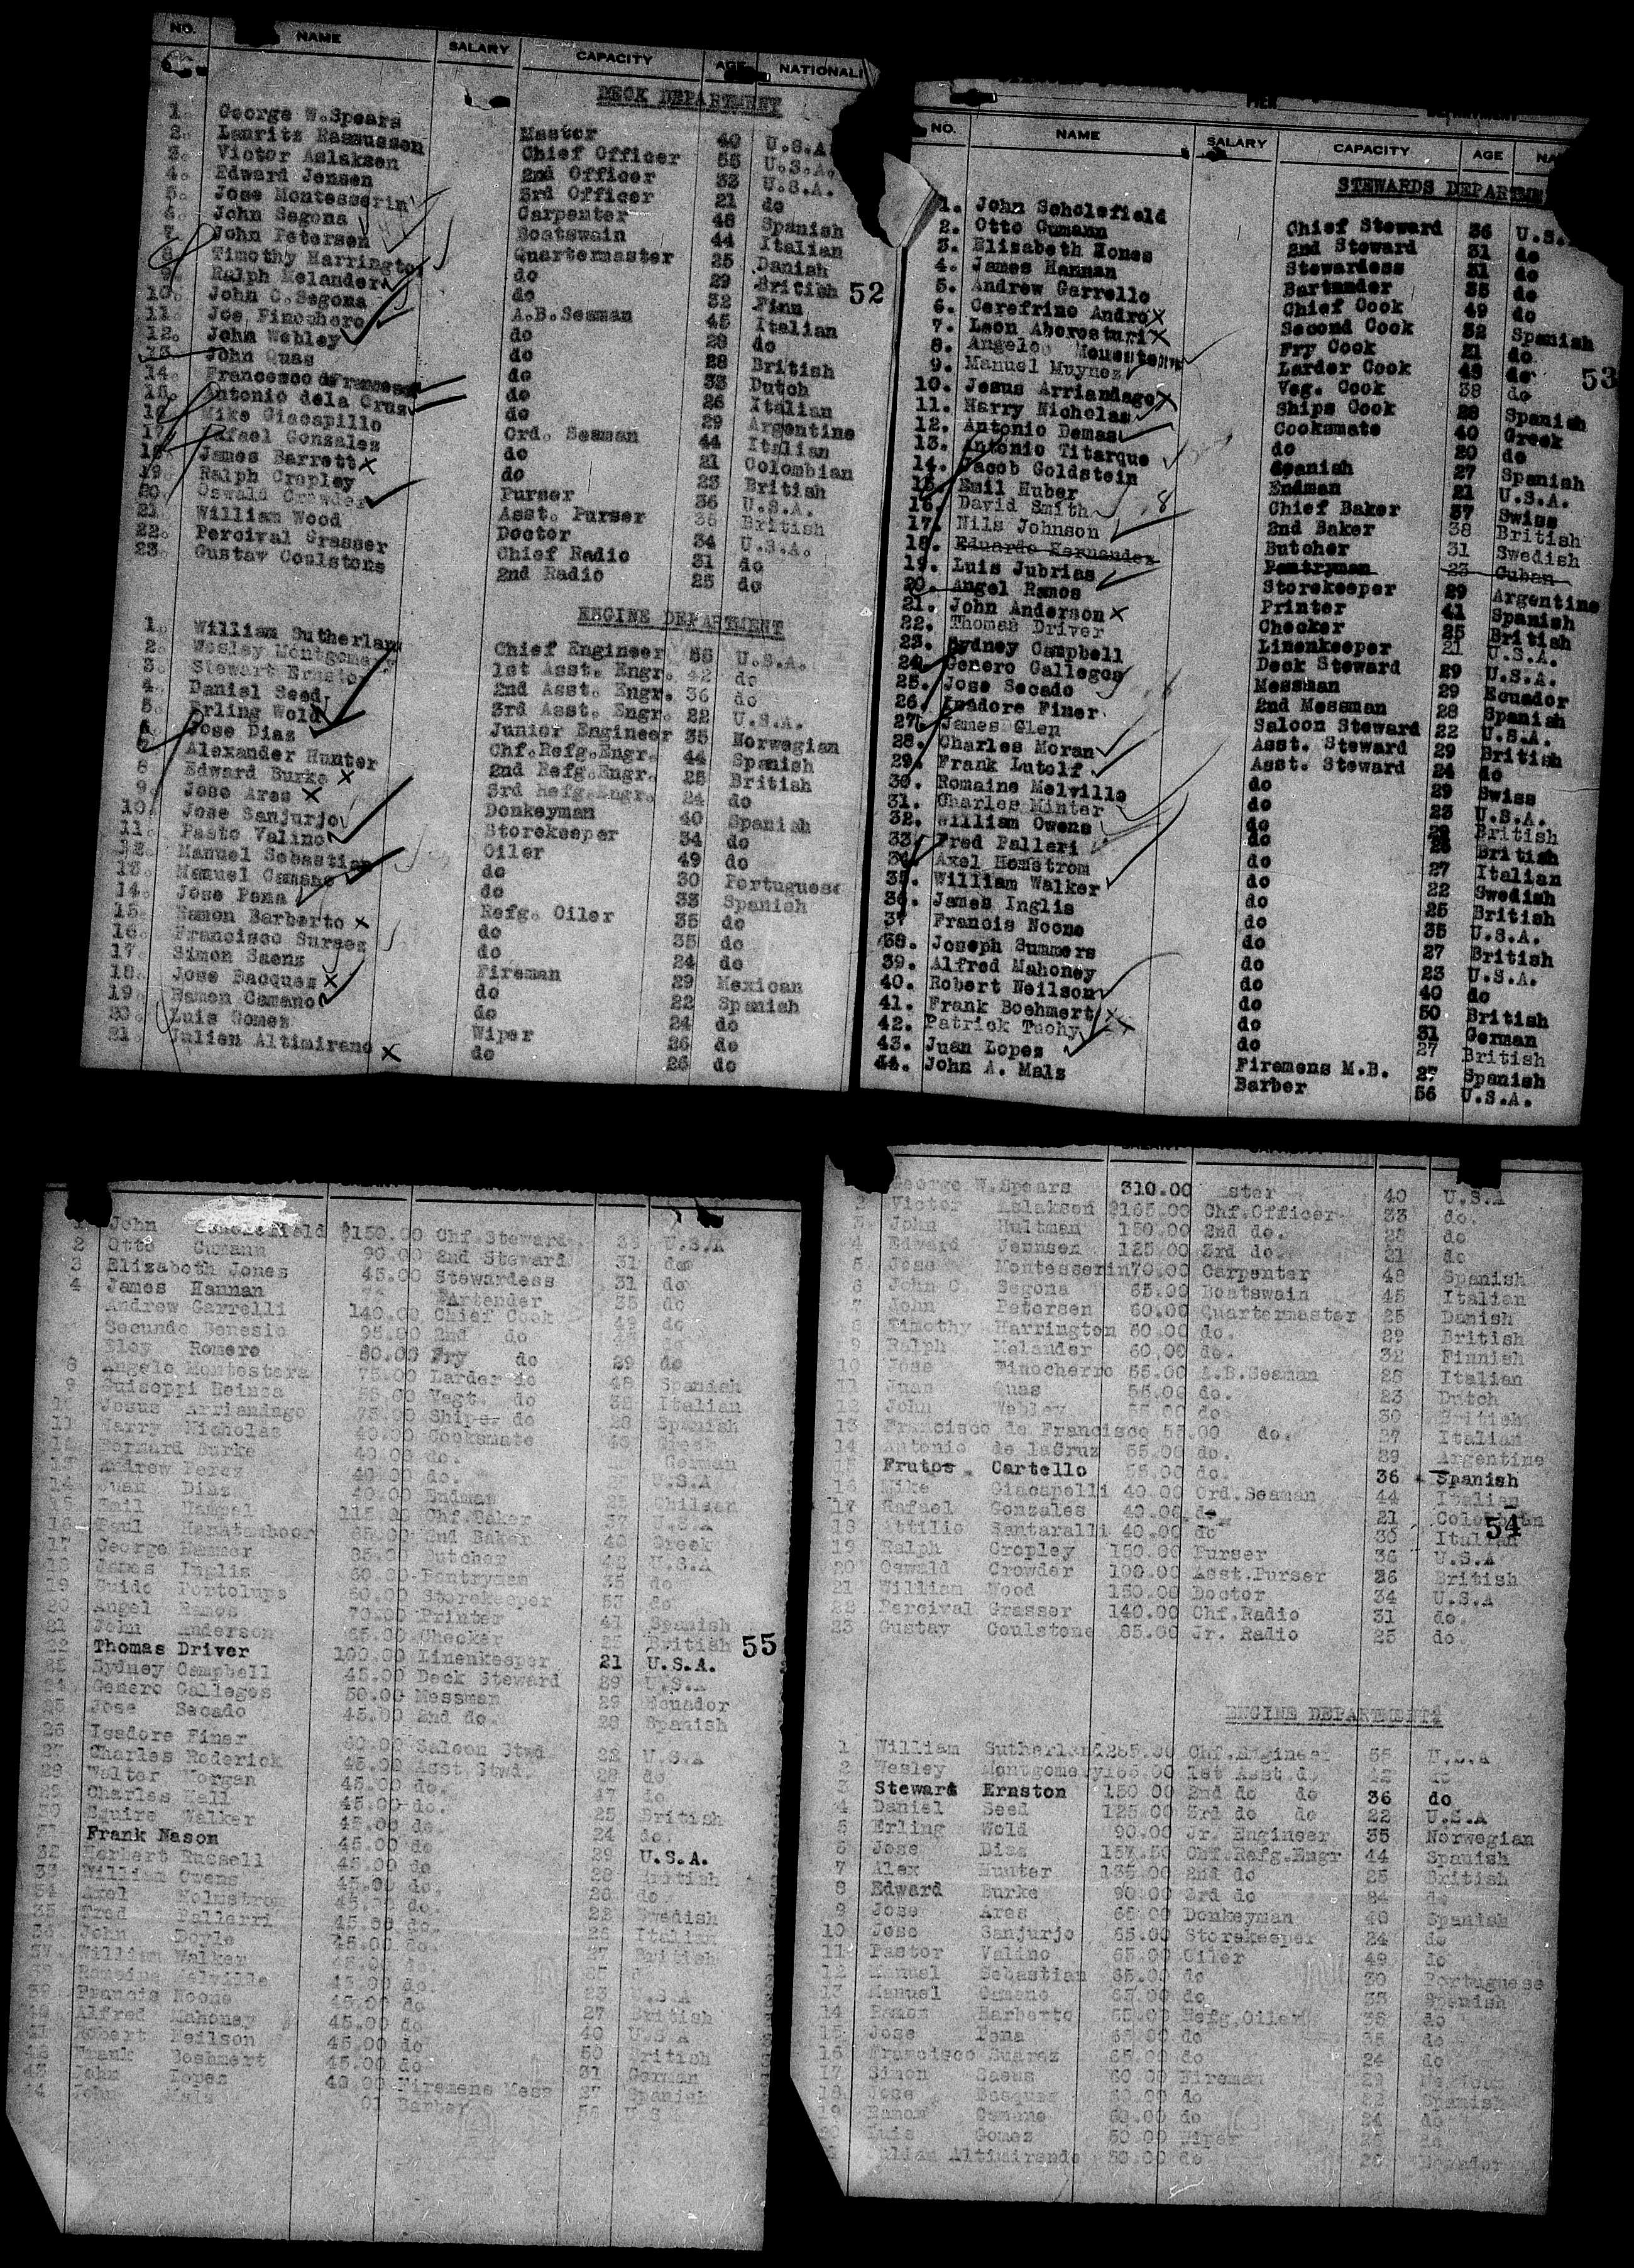 NO. NAME SALARY CAPACITY AGE NATIONALI
DECK DEPARTMENT
1. George W.Spears Master 40 U.S.A.
2. Lauritz Rasmussen Chief Officer 55 U.S.A.
3. Victor Aslaksen 2nd Officer 33 U.S.A.
4. Edward Jensen 3rd Officer 21 do
5. Jose Montesserin Carpenter 48 Spanish
6. John Segona Boatswain 44 Italian
7. John Petersen Quartermaster 25 Danish
8. Timothy Harrington do 29 British
9. Ralph Melander do 32 Finn
10. John C.Segona A.B.Seaman 45 Italian
11. Joe Finochero do 28 do
12. John Webley do 28 British
13. John Quas do 33 Dutch
14. Francesco do 26 Italian
15. Antonio dela Cruz do 29 Argentine
16. Mike Giacapillo Ord. Seaman 44 Italian
17. Rafael Gonzales do 21 Colombian
18. James Barrett X do 23 British
19. Ralph Cropley Purser 36 U.S.A.
20. Oswald Crowder Asst. Purser 36 British
21. William Wood Doctor 34 U.S.A.
22. Percival Grasser Chief Radio 31 do
23. Gustav Coulstone 2nd Radio 25 do
52
ENGINE DEPARTMENT
1. William Sutherland Chief Engineer 55 U.S.A.
2. Wesley Montgomery 1st Asst. Engr. 42 do
3. Stewart Ernston 2nd Asst. Engr. 36 do
4. Daniel Seed 3rd Asst. Engr. 22 U.S.A.
5. Erling Wold Junior Engineer 35 Norwegian
6. Jose Dias Chf.Refg.Engr. 44 Spanish
7. Alexander Hunter 2nd Refg.Engr. 25 British
8. Edward Burke X 3rd Refg.Engr. 24 do
9. Jose Ares X Donkeyman 40 Spanish
10. Jose Sanjurjo Storekeeper 34 do
11. Pasto Valino Oiler 49 do
12. Manuel Sebastian do 30 Portuguese
13. Manuel Camano do 33 Spanish
14. Jose Pena Refg. Oiler 35 do
15. Ramon Barberto X do 35 do
16. Francisco Surges do 24 do
17. Simon Saenz Fireman 29 Mexican
18. Jose Bacques X do 22 Spanish
19. Ramon Camano do 24 do
20. Luis Gomez Wiper 26 do
21. Julien Altimirano X do 26 do
NO. NAME SALARY CAPACITY AGE
STEWARDS DEPARTME
1. John Scholefield Chief Steward 36 U.S.
2. Otto Cumann 2nd Steward 31 do
3. Elizabeth Hones Stewardess 31 do
4. James Hannan Bartender 35 do
5. Andrew Garrello Chief Cook 49 do
6. Cerefrino Andro X Second Cook 32 Spanish
7. Leon Aberasturi X Fry Cook 21 do
8. Angelo Larder Cook 48 do
9. Manuel Muynez Veg. Cook 38 do
10. Jesus Arriandago X Ships Cook 28 Spanish
11. Harry Nicholas Cooksmate 40 Greek
12. Antonio Demas do 20 do
13. Antonio Titarque Spanish 27 Spanish
14. Jacob Goldstein Endman 21 U.S.A.
15. Emil Huber Chief Baker 37 Swiss
16. David Smith 2nd Baker 38 British
17. Nils Johnson Butcher 31 Swedish
18. Eduardo Kernandez Pantryman 23 Cuban
19. Luis Jubrias Storekeeper 29 Argentine
20. Angel Ramos Printer 41 Spanish
21. John Anderson X Checker 25 British
22. Thomas Driver Linenkeeper 21 U.S.A.
23. Sydney Campbell Deck Steward 29 U.S.A.
24. Genero Gallegos Messman 29 Ecuador
25. Jose Secado 2nd Messman 28 Spanish
26. Isadore Finer Saloon Steward 22 U.S.A.
27. James Glen Asst. Steward 29 British
28. Charles Moran Asst. Steward 24 do
29. Frank Lutolf do 29 Swiss
30. Romaine Melville do 23 U.S.A.
31. Charles Minter do British
32. William Owens do 26 British
33. Fred Pallari do 27 Italian
34. Axel Homstrom do 22 Swedish
35. William Walker do 25 British
36. James Inglis do 35 U.S.A.
37 Francis Noone do 27 British
38. Joseph Summers do 23 U.S.A.
39. Alfred Mahoney do 40 do
40. Robert Neilson do 50 British
41. Frank Boehmert do 31 German
42. Patrick Tuohy do 27 British
43. Juan Lopes Firemens M.B. 27 Spanish
44. John A. Mals Barber 56 U.S.A.
53
1 John Scholefield $150.00 Chf Steward U.S.A
2 Otto Cumann 90.00 2nd Steward 31 do
3 Elizabeth Jones 45.00 Stewardess 31 do
4 James Hannan Bartender 35 do
Andrew Garrelli 140.00 Chief Cook 49 do
Secundo Benesio 95.00 2nd do do
Eloy Romero 80.00 Fry do 29 do
8 Angelo Montestera 75.00 Larder do 48 Spanish
9 Guiseppi Reinza 55.00 Vegt. do Italian
10 Jesus Arriandago 75.00 Ships do 28 Spanish
11 Harry Nicholas 40.00 Cooksmate 40 Greek
12 Bernard Burke 40.00 do. German
13 Andrew Perez 40.00 do. U.S.A
14 Juan Diaz 40.00 Endman 25 Chilean
15 Emil 115.00 Chf.Baker 37 U.S.A
16 Paul 2nd Baker 40 Greek
17 George Hammer 85.00 Butcher 42 U.S.A
18 James Inglis 60.00 Pantryman 35 do
19 Guido Portolups 50.00 Storekeeper 53 do
20 Angel Ramos 70.00 Printer 41 Spanish
21 John Anderson 65.00 Checker 25 British
22 Thomas Driver 100.00 Linenkeeper 21 U.S.A.
23 Sydney Campbell 45.00 Deck Steward 29 U.S.A
24 Genero Gallegos 50.00 Messman 29 Ecuador
25 Jose Secado 45.00 2nd do. 28 Spanish
26 Isadore Finer 60.00 Saloon Stwd 22 U.S.A
27 Charles Roderick 45.00 Asst.Stwd. 22 do
28 Walter Morgan 45.00 do. 47 do
29 Charles Hall 45.00 do. 25 British
30 Squire Walker 45.00 do. 24 do.
31 Frank Nason 45.00 do 29 U.S.A.
32 Herbert Russell 45.00 do 28 British
33 William Owens 45.00 do. 26 do.
34 Axel Holmstrom 45.00 do. 22 Swedish
35 Fred Pallerri 45.00 do. 26 Italian
36 John Doyle 45.00 do. 27 British
37 William Walker 45.00 do.
38 Romaine Melville 45.00 do. 23 U.S.A
39 Francis Noone 45.00 do 27 British
40 Alfred Mahoney 45.00 do 40 U.S.A
41 Robert Neilson 45.00 do 50 British
42 Frank Boehmert 45.00 do 31 German
43 John Lopes 40.00 Firemens Mess 27 Spanish
44 John Mals 01 Barber 56 U.S
55
George W.Spears 310.00 40 U.S.A
2 Victor Aslaksen $165.00 Chf.Officer 33 do.
3 John Hultman 150.00 2nd do. 28 do
4 Edward Jennsen 125.00 3rd do. 21 do
5 Jose Montesserin 70.00 Carpenter 48 Spanish
6 John C. Segona 65.00 Boatswain 45 Italian
7 John Petersen 60.00 Quartermaster 25 Danish
8 Timothy Harrington 60.00 do. 29 British
9 Ralph Melander 60.00 do. 32 Finnish
10 Jose Finocherro 55.00 A.B.Seaman 28 Italian
11 Juan Quas 55.00 do. 23 Dutch
12 John Webley 55.00 do 30 British
13 Francisco de Francisco 55.00 do. 27 Italian
14 Antonio de laCruz 55.00 do. 29 Argentine
15 Frutos Cartello 55.00 do. 36 Spanish
16 Mike Giacapelli 40.00 Ord.Seaman 44 Italian
17 Rafael Gonzales 40.00 do 21
18 Attilio Santaralli 40.00 do 30 Italian
19 Ralph Cropley 150.00 Purser 36 U.S.A
20 Oswald Crowder 100.00 Asst.Purser 26 British
21 William Wood 150.00 Doctor 34 U.S.A
22 Percival Grasser 140.00 Chf.Radio 31 do.
23 Gustav Coulstone 85.00 Jr. Radio 25 do
54
ENGINE DEPARTMENT
1 William Sutherland 285.00 Chf.Engineer 55 U.S.A
2 Wesley Montgomery 165.00 1st Asst.do 42 do
3 Steward Ernston 150.00 2nd do do 36 do
4 Daniel Seed 125.00 3rd do do 22 U.S.A
5 Erling Wold 90.00 Jr. Engineer 35 Norwegian
6 Jose Dias 157.50 Chf.Refg.Engr 44 Spanish
7 Alex Hunter 135.00 2nd do 25 British
8 Edward Burke 90.00 3rd do 24 do
9 Jose Ares 65.00 Donkeyman 40 Spanish
10 Jose Sanjurjo 65.00 Storekeeper 24 do
11 Pastor Valino 65.00 Oiler 49 do
12 Manuel Sebastian 65.00 do 30 Portuguese
13 Manuel Camano 65.00 do 33 Spanish
14 Ramon Barberto 65.00 Refg.Oiler 35 do
15 Jose Pena 65.00 do 35 do
16 Francisco Suarez 65.00 do 24 do
17 Simon Saens 60.00 Fireman 29 Mexican
18 Jose Bacques 60.00 do 22 Spanish
19 Ramon Camano 60.00 do 24 do
20 Luis Gomez 50.00 Wiper do
Altimirando 50.00 do Ecuador